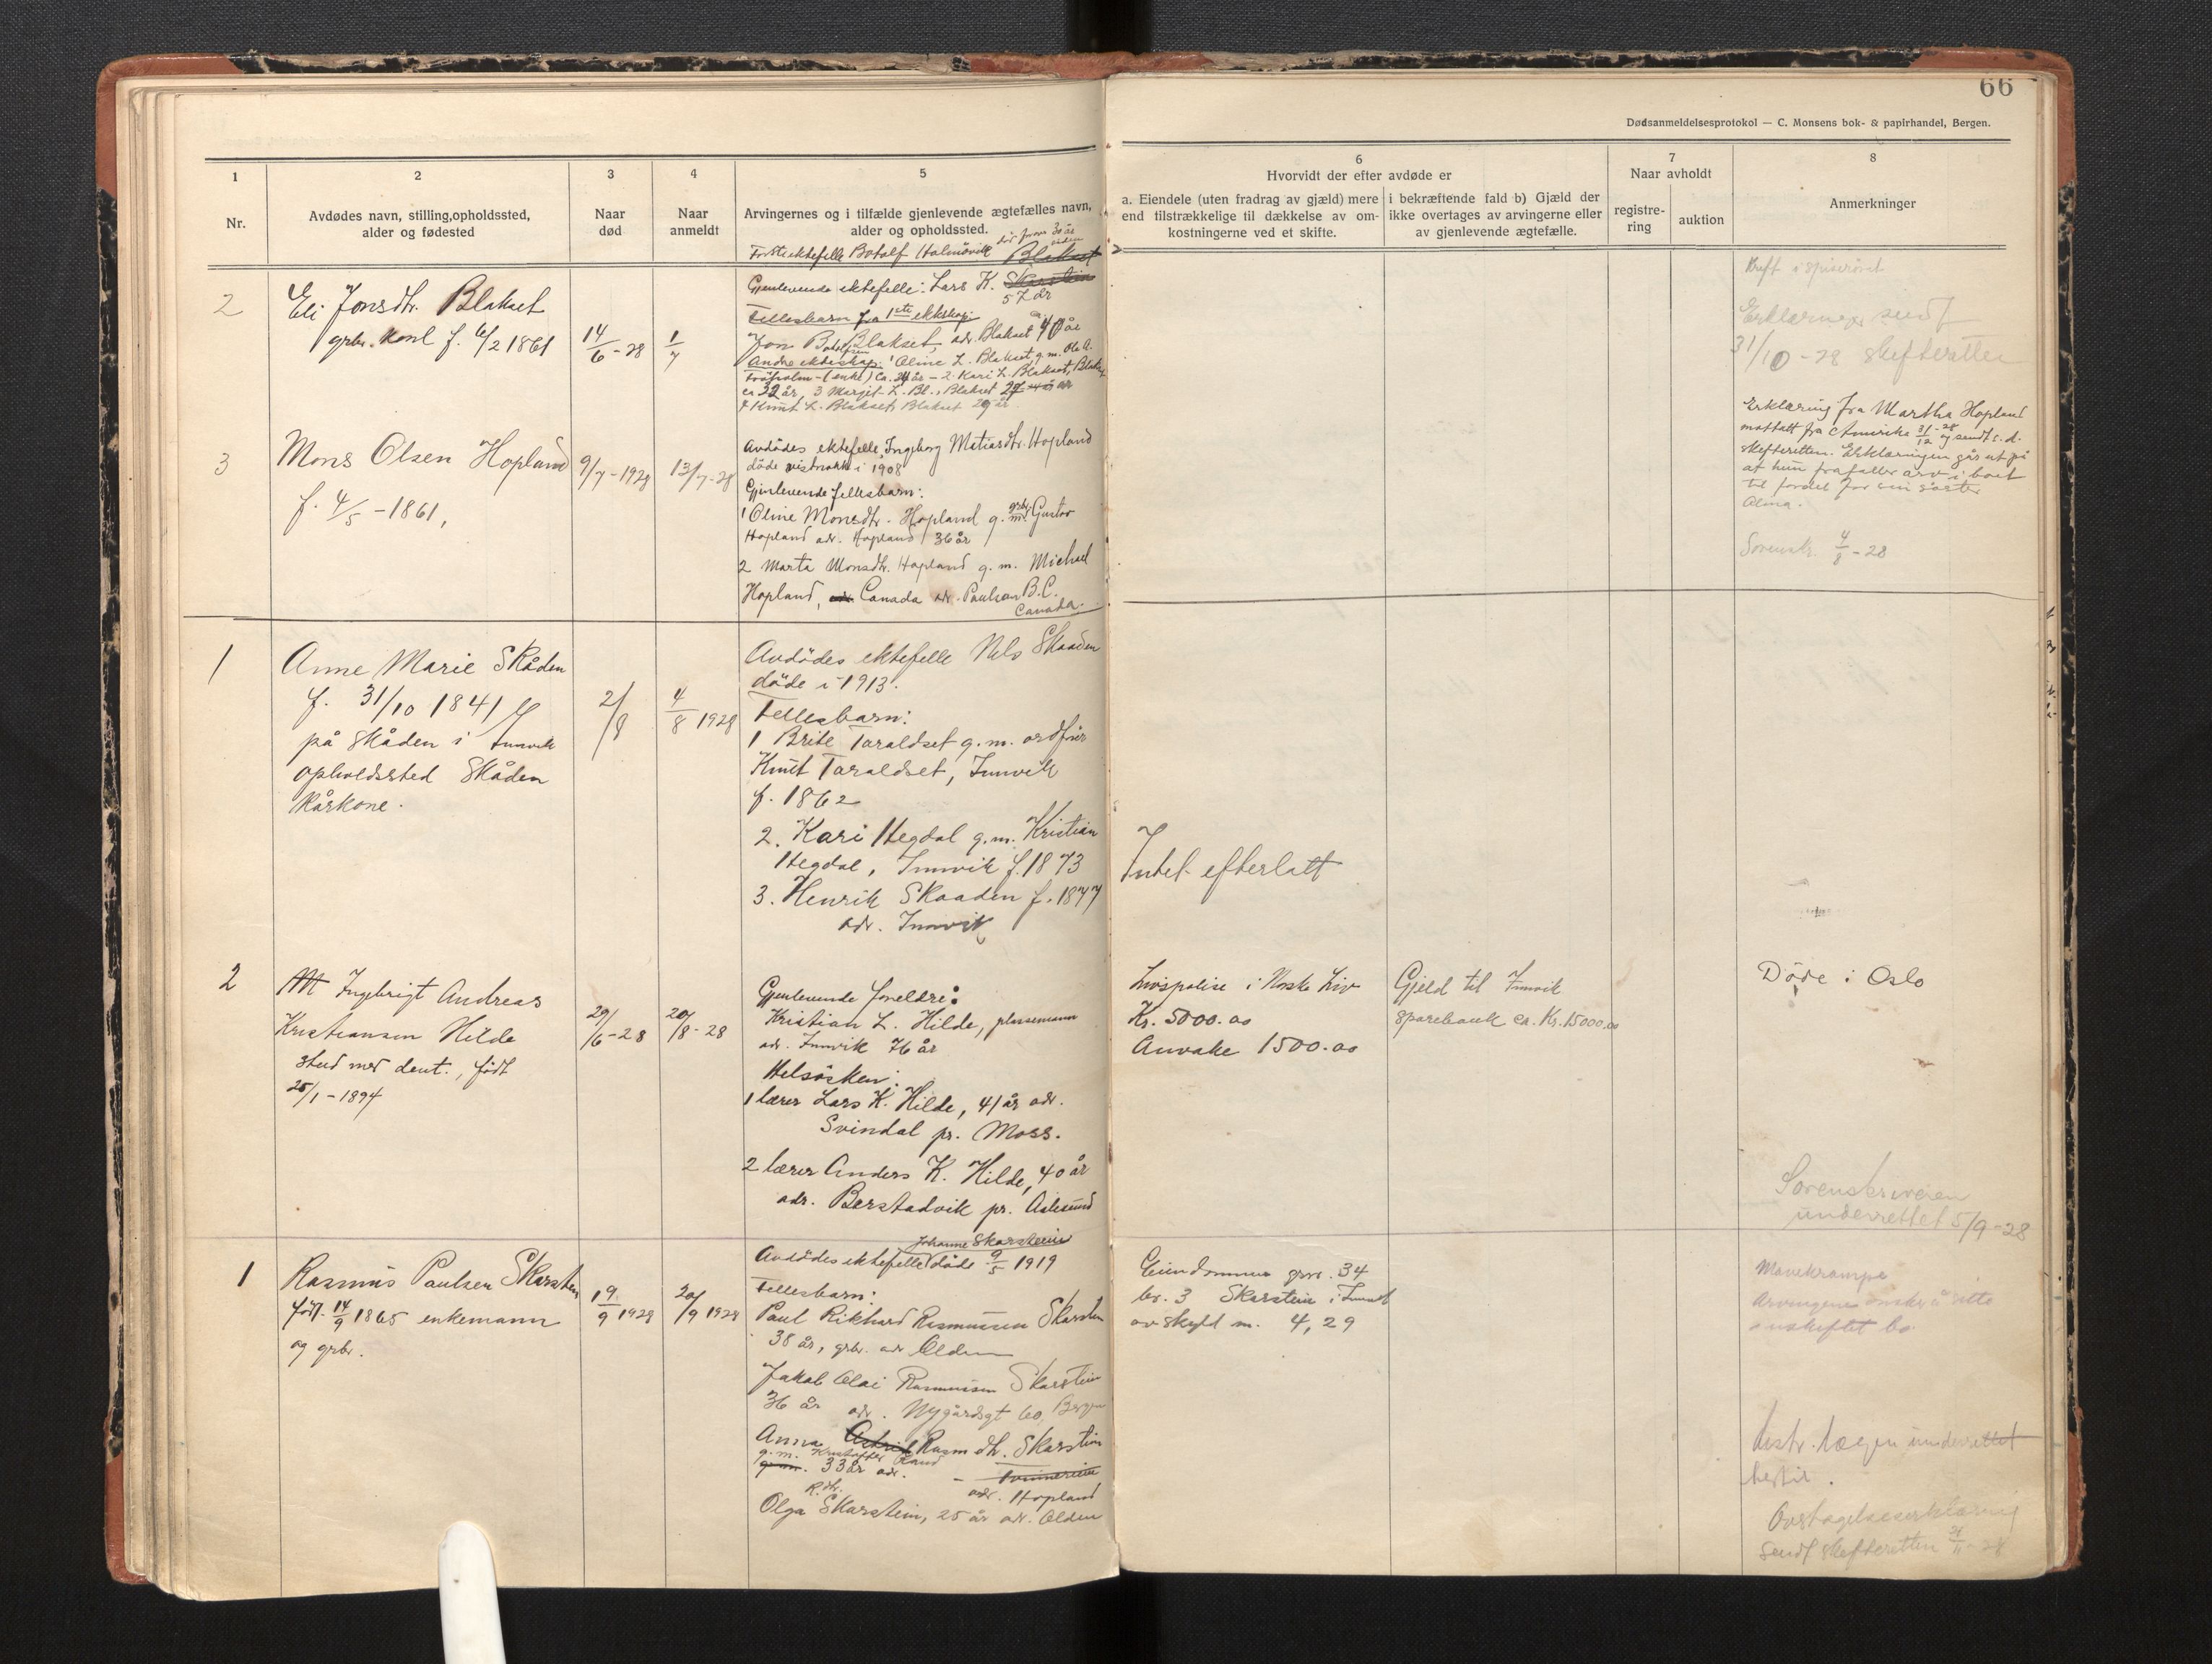 66
Dødsanmeldelsesprotokol — C. Monsens bok- & papirhandel, Bergen.
1
Nr.
2
Avdødes navn, stilling, opholdssted,
alder og fødested
3
Naar
død
4
Naar
anmeldt
5
Arvingernes og i tilfælde gjenlevende ægtefælles navn,
alder og opholdssted.
6
Hvorvidt der efter avdøde er
a. Eiendele (uten fradrag av gjæld) mere
end tilstrækkelige til dækkelse av om-
kostningerne ved et skifte.
i bekræftende fald b) Gjæld der
ikke overtages av arvingerne eller
av gjenlevende ægtefælle.
7
Naar avholdt
registre-
ring
auktion
8
Anmerkninger
2
Eli Jonsdtr. Blakset
grbr. konl f. 6/2 1861
14/6-28
1/7
Første ektefelle Botolf Holmøvik Blakset
død for 30 år siden
Gjenlevende ektefelle: Lars K. Skarstein
57 år
Fellesbarn fra 1ste ekteskap:
Jon Botolfsen Blakset, adr. Blakset ca 40 år
Andre ekteskap: 1 Oline L. Blakset g.m. Ole A.
(enke) ca. 34 år - 2. Kari L. Blakset, Blakset
ca 32 år, 3 Margit L. Bl., Blakset 27 år
4 Knut L. Blakset, Blakset 25 år
Kreft i spiserøret
Erklæringer sendt
31/10-28 skifteretten
3
Mons Olsen Hopland
f. 4/5-1861,
9/7-1928
13/7-28
Avdødes ektefelle, Ingeborg Matiasdtr. Hopland
døde vistnokk i 1908
Gjenlevende fellesbarn:
1 Oline Monsdtr. Hopland g.m. grbr. Gustav
Hopland adr. Hopland 36 år
2 Marta Monsdtr. Hopland g.m. Michael
Hopland, adr Canada adr. Paulson B.C.
Canada.
Erklæring fra Martha Hopland
mottatt fra Amerika 31/12-28 og sendt s.d.
skifteretten. Erklæringen går ut på
at hun frafaller arv i boet
til fordel for sin søster
Alina.
Sorenskr. 4/8-28
1
Anne Marie Skåden
f. 31/10 1841
på Skåden i Innvik
opholdssted Skåden
Kårkone.
2/8
4/8 1928
Avdødes ektefelle Nils Skaaden
døde i 1913.
Fellesbarn:
1 Brite Taraldset g.m. ordfører
Knut Taraldset, Innvik
f. 1862
2. Kari Hegdal g.m. Kristian
Hegdal, Innvik f. 1873
3. Henrik Skaaden f. 1877
adr. Innvik
Intet efterlatt
2
Ingebrigt Andreas
Kristiansen Hilde
stud med dent., født
25/1-1894
29/6-28
20/8-28
Gjenlevende foreldre:
Kristian L. Hilde, plassemann
adr. Innvik 76 år
Helsøsken:
1 lærer Lars K. Hilde, 41 år adr.
Svindal pr. Moss.
2 lærer Anders K. Hilde, 40 år
adr. Berstadvik pr. Aalesund
Livspolise i Norske Liv
Kr. 5000.00
Anvake 1500.00
Gjeld til Innvik
sparebank ca. Kr. 15000.00
Døde i Oslo
Sorenskriveren
underrettet 5/9-28
1
Rasmus Paulsen Skarstein
født 14/9 1865 enkemann
og grbr.
19/9 1928
20/9 1928
Avdødes ektefelle Johanne Skarstein døde 9/5 1919
Fellesbarn:
Paul Rikhard Rasmussen Skarstein
38 år, grbr. adr Olden
Jakob Olai Rasmussen Skarstein
36 år adr. Nygårdsgt 60, Bergen
Anna Astrid Rasm dtr. Skarstein
g.m. Kristoffer Rand
g.m. 33 år adr. -
adr. Hopland
Olga R.dtr. Skarstein, 25 år adr. Olden
Eiendommen gnr. 34
br. 3 Skarstein i Innvik
av skyld m. 4,29
Mavekrampe
Arvingene ønsker å sitte
i uskiftet bo.
distr. lægen underrettet
hertil.
Overtagelseserklæring
sendt skifteretten 24/11-28